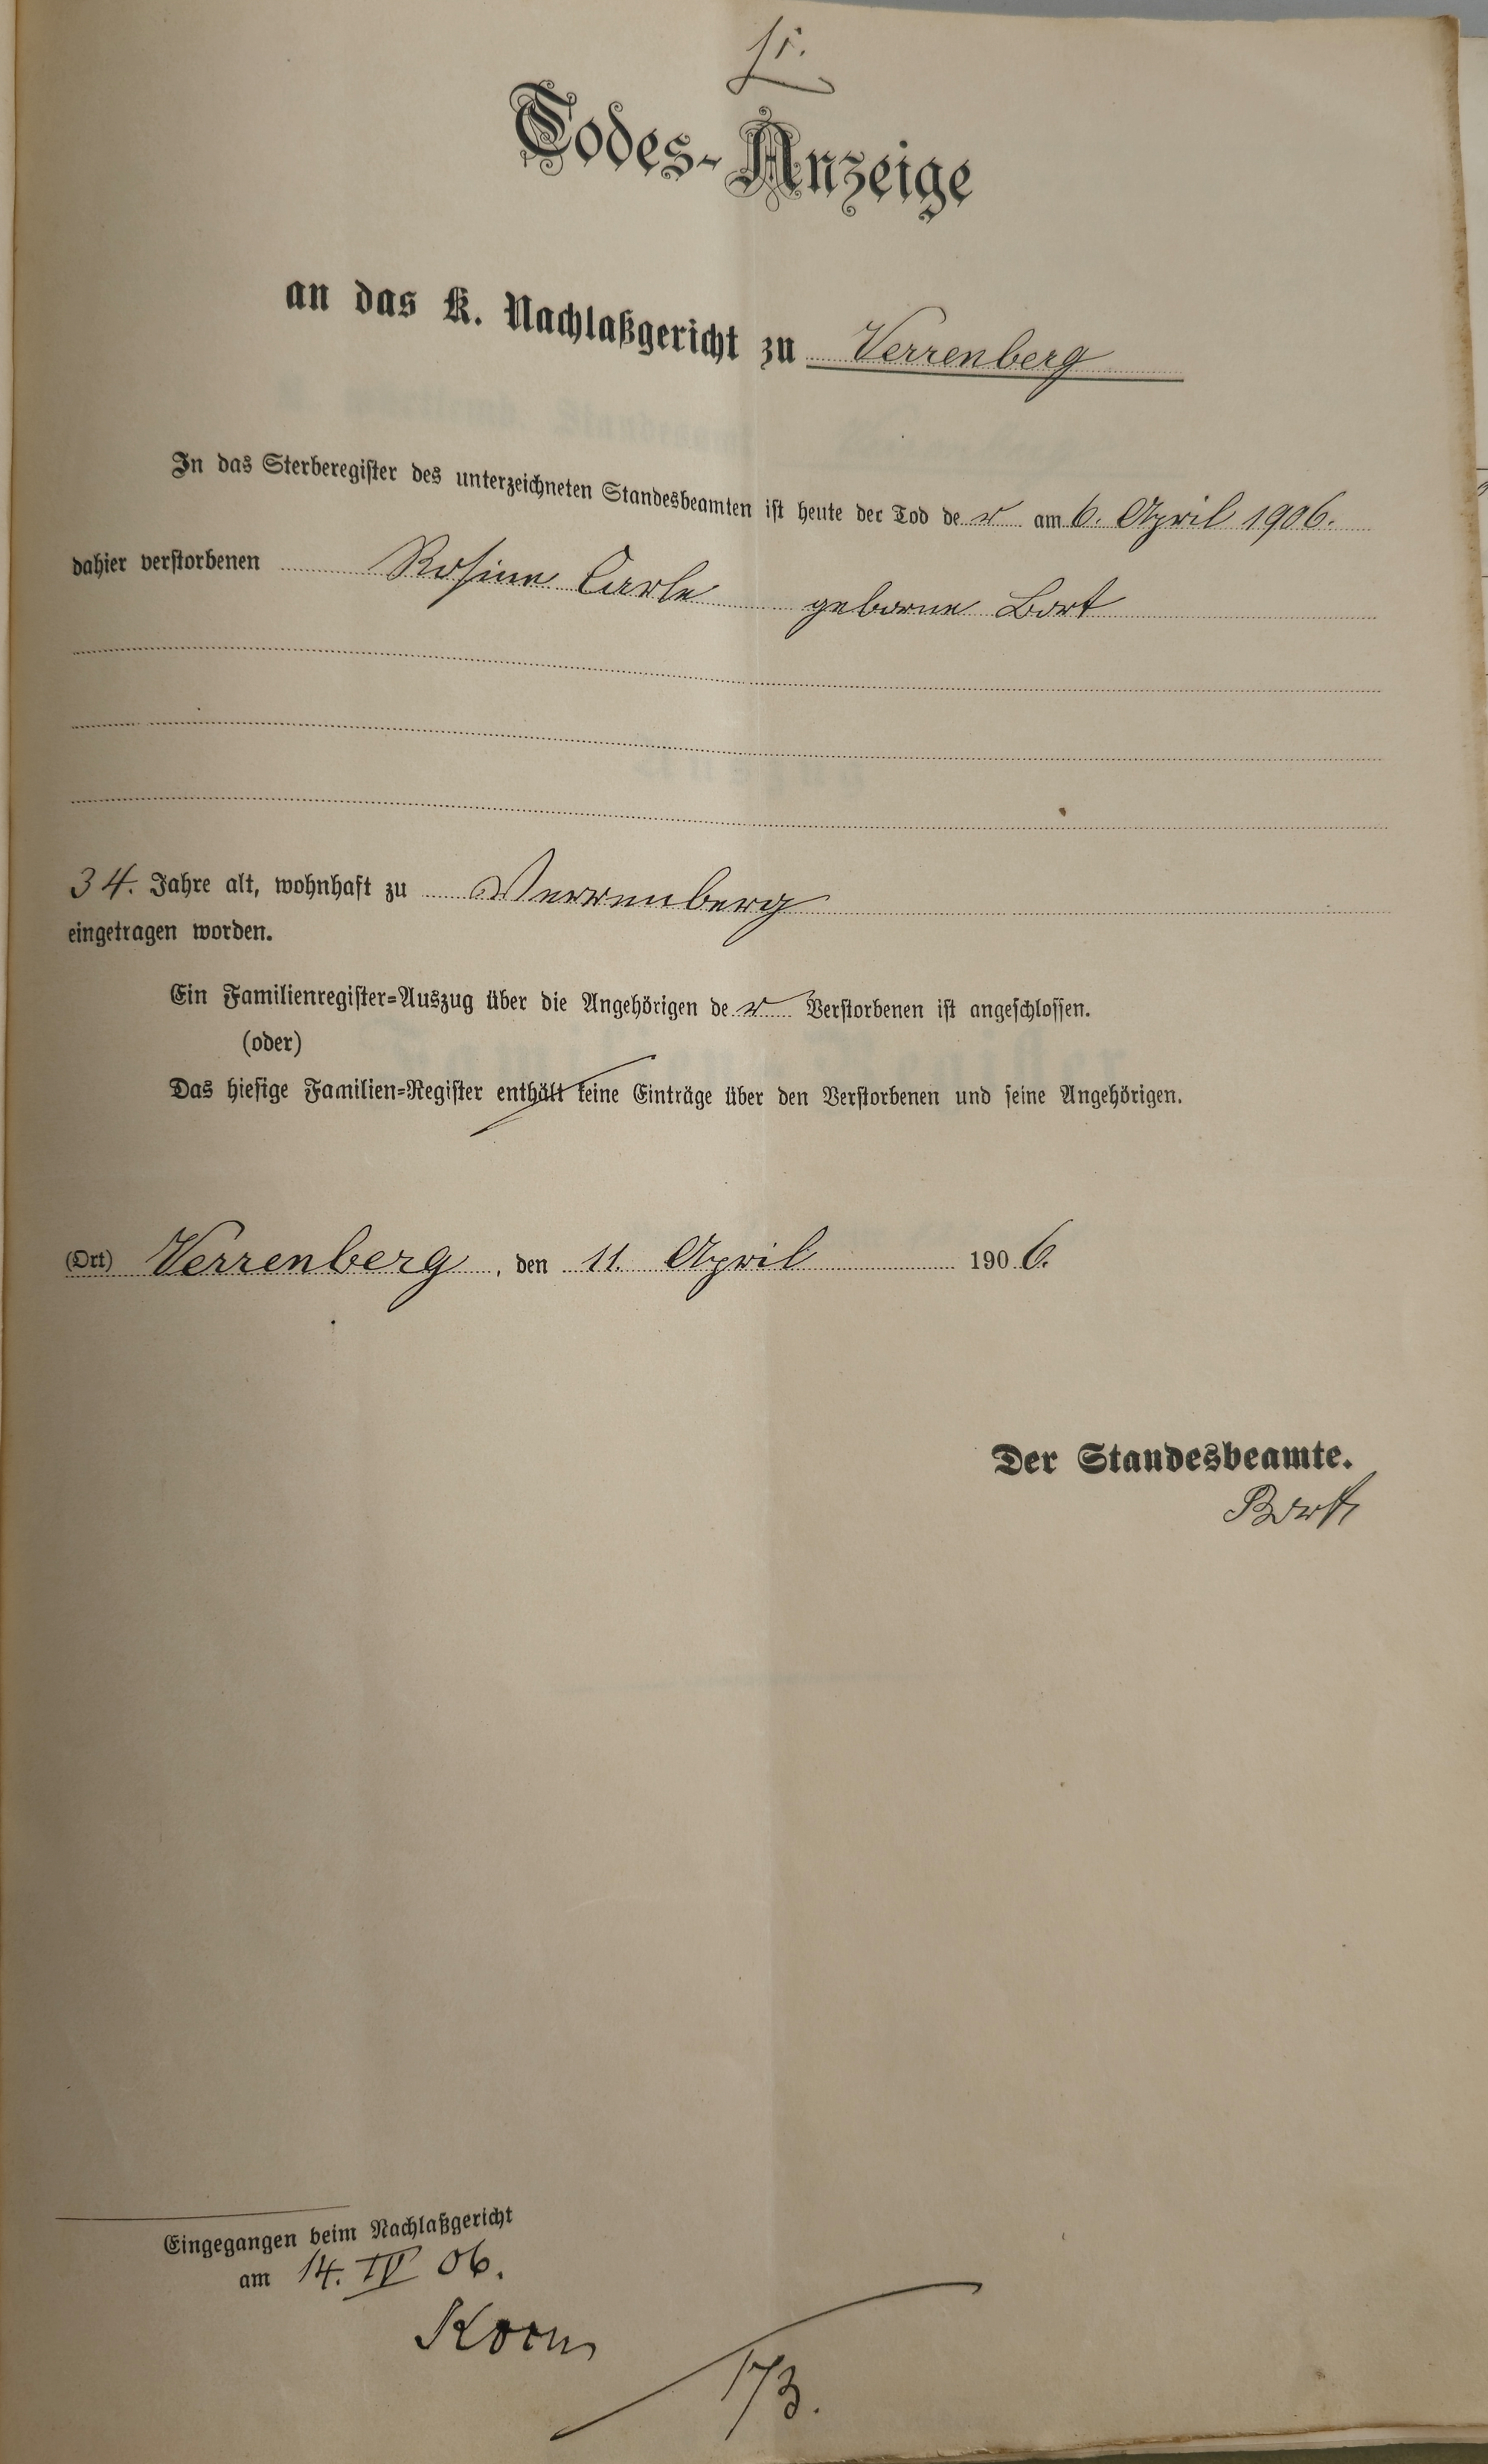 Todes-Anzeige
an das K. Nachlaßgericht zu Verrenberg
In das Sterberegister des unterzeichneten Standesbeamten ist heute der Tod de r am 6. April 1906.
dahier verstorbenen Rosine Carle geborne Bort
34. Jahre alt, wohnhaft zu Verrenberg
eingetragen worden.
Ein Familienregister-Auszug über die Angehörigen de r Verstorbenen ist angeschlossen.
(oder)
Das hiesige Familien-Register enthält keine Einträge über den Verstorbenen und seine Angehörigen.
(Ort) Verrenberg, den 11. April 1906.
Der Standesbeamte.
Bort
Eingegangen beim Nachlaßgericht
am 14. IV 06.